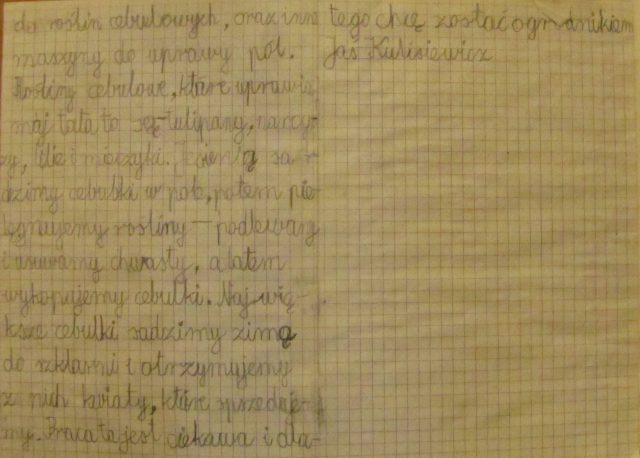 do roślin cebulowych, oraz inne
maszyny do uprawy pól.
Rośliny cebulowe, które uprawia
mój tata to są-tulipany, narcy-
zy, lilie i mieczyki. Jesienią sa-
dzimy cebulki w pole, potem pie-
lęgnujemy rośliny - podlewamy
i usuwamy chwasty, a latem
wykopujemy cebulki. Naj wię-
ksze cebulki sadzimy zimą
do szklarni i otrzymujemy
z nich kwiaty, które sprzedaje-
my. Praca ta jest ciekawa i dla-
tego chcę zostać ogrodnikiem
Jaś Kulisiewicz